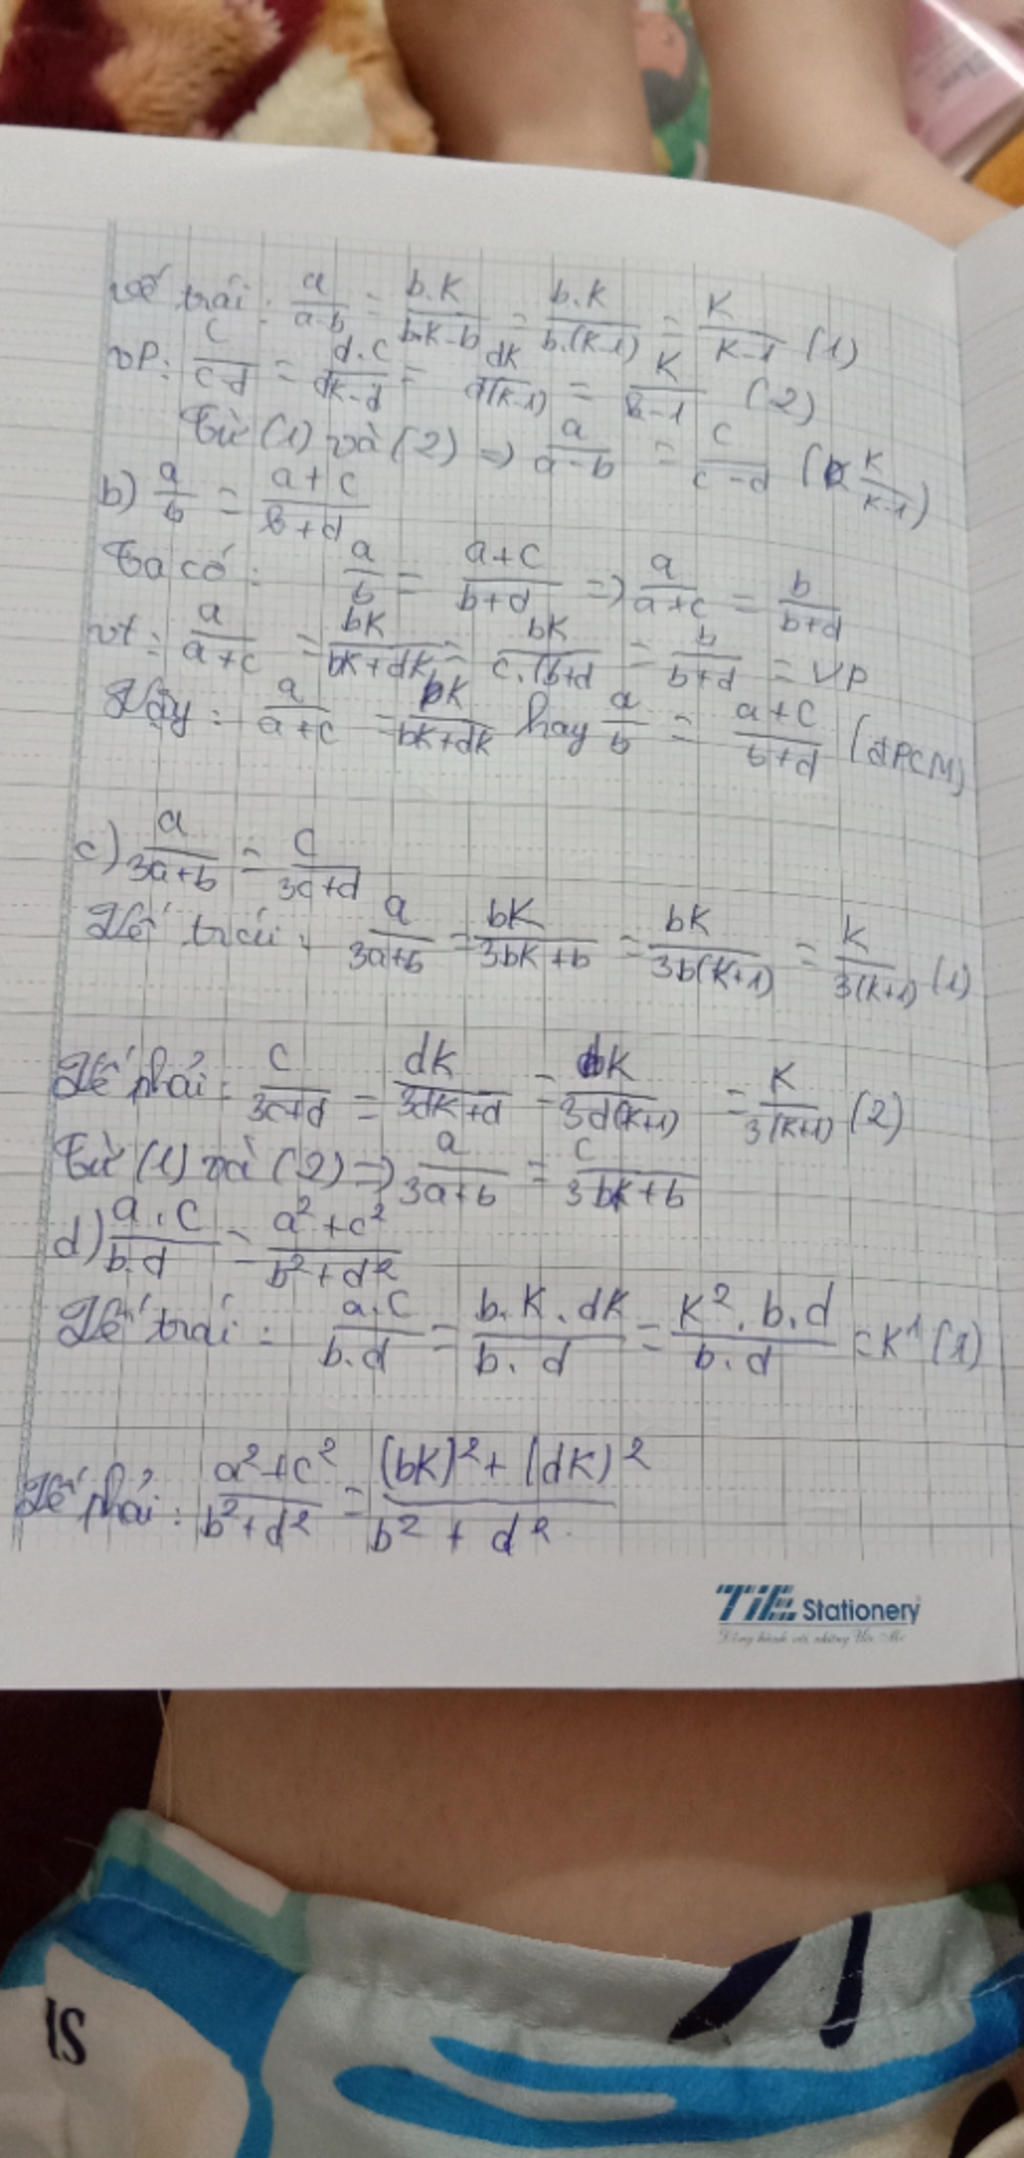 Vế trái: a/(a-b) = b.K/(b.K-b) = b.K/(b.(K-1)) = K/(K-1) (1)
VP: c/(c-d) = d.c/(dK-d) = dK/(d(K-1)) = K/(K-1) (2)
Từ (1) và (2) => a/(a-b) = c/(c-d) (K/(K-1))
b) a/b = (a+c)/(b+d)
Ta có: a/b = (a+c)/(b+d) => a/(a+c) = b/(b+d)
vt: a/(a+c) = bK/(bK+dK) = bK/(c.(b+d) = b/(b+d) = VP
Vậy: a/(a+c) = bK/(bK+dK) hay a/b = (a+c)/(b+d) (đPCM)
c) a/(3a+b) = c/(3c+d)
Vế trái: a/(3a+b) = bK/(3bK+b) = bK/(3b(K+1)) = K/(3(K+1)) (1)
Vế phải: c/(3c+d) = dK/(3dK+d) = dK/(3d(K+1)) = K/(3(K+1)) (2)
Từ (1) và (2) => a/(3a+b) = c/(3bK+b)
d) a.c/b.d = (a²+c²)/(b²+d²)
Vế trái: a.c/b.d = b.K.dK/b.d = K².b.d/b.d = K¹ (1)
Vế phải: (a²+c²)/(b²+d²) = ((bK)²+(dK)²)/(b²+d²)
TiE Stationery
IS